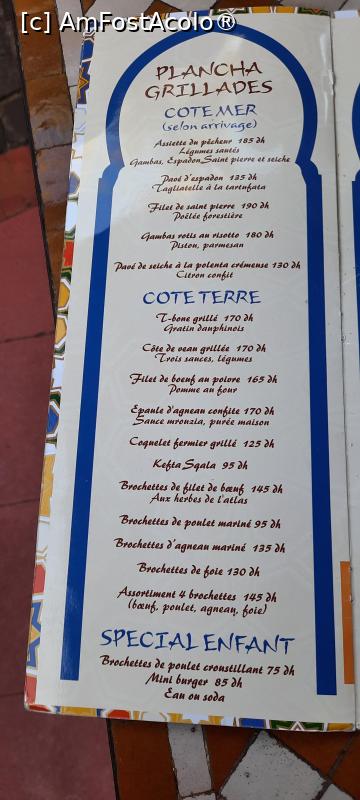 [c] AmFostAcolo®
PLANCHA
GRILLADES
COTE MER
(selon arrivage)
Assiette du pêcheur 185 dh
Légumes sautés
Gambas, Espadon, Saint pierre et seiche
Pavé d'espadon 135 dh
Tagliatelle à la tartufata
Filet de saint pierre 190 dh
Poêlée forestière
Gambas rotis au risotto 180 dh
Piston, parmesan
Pavé de seiche à la polenta crémeuse 130 dh
Citron confit
COTE TERRE
T-bone grillé 170 dh
Gratin dauphinois
Côte de veau grillée 170 dh
Trois sauces, légumes
Filet de boeuf au poivre 165 dh
Pomme au four
Epaule d'agneau confite 170 dh
Sauce mrouzia, purée maison
Coquelet fermier grillé 125 dh
Kefta Sqala 95 dh
Brochettes de filet de bœuf 145 dh
Aux herbes de l'atlas
Brochettes de poulet mariné 95 dh
Brochettes d'agneau mariné 135 dh
Brochettes de foie 130 dh
Assortiment 4 brochettes 145 dh
(bœuf, poulet, agneau, foie)
SPECIAL ENFANT
Brochettes de poulet croustillant 75 dh
Mini burger 85 dh
Eau ou soda